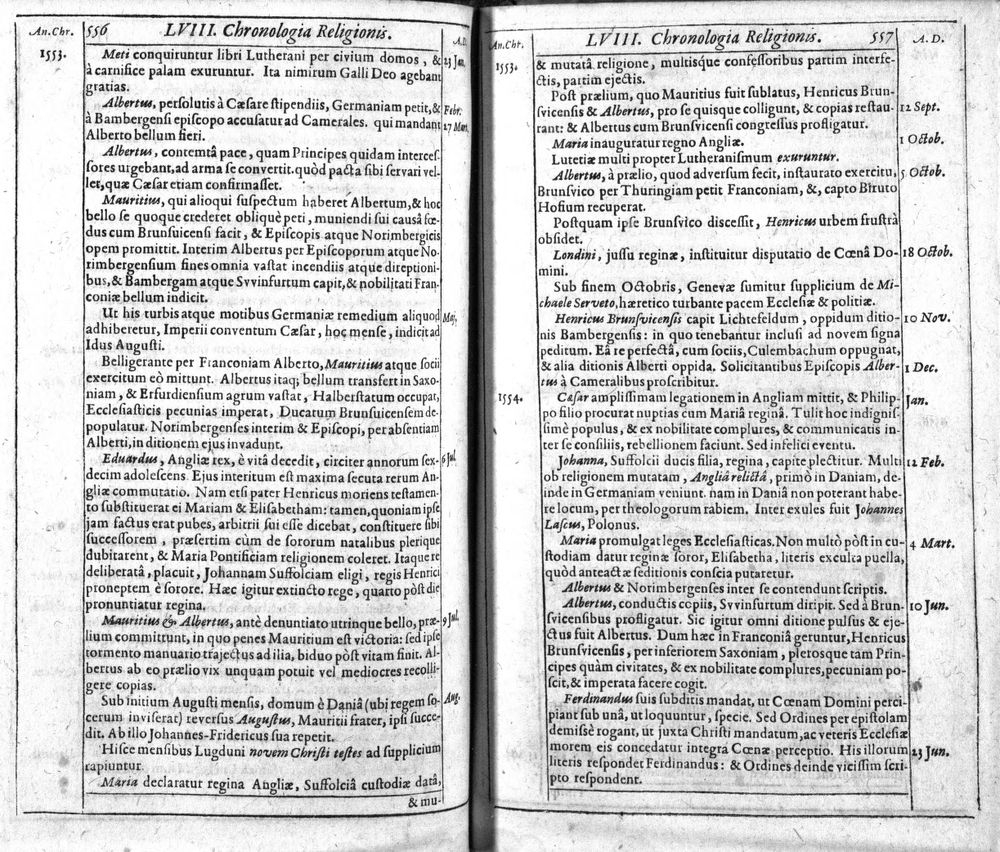 An.Chr. 556 LVIII. Chronologia Religionis. A.D.
1553. Meti conquiruntur libri Lutherani per civium domos, & 23 Jan.
à carnifice palam exuruntur. Ita nimirum Galli Deo agebant
gratias.
Albertus, persolutis à Cæsare stipendiis, Germaniam petit, & Febr.
à Bambergensi episcopo accusatur ad Camerales. qui mandant 27 Mart.
Alberto bellum fieri.
Albertus, contemtâ pace, quam Principes quidam interces-
sores urgebant, ad arma se convertit. quòd pacta sibi servari vel-
let, quæ Cæsar etiam confirmasset.
Mauritius, qui alioqui suspectum haberet Albertum, & hoc
bello se quoque crederet obliquè peti, muniendi sui causâ fœ-
dus cum Brunsuicensi facit, & Episcopis atque Norimbergicis
opem promittit. Interim Albertus per Episcoporum atque No-
rimbergensium fines omnia vastat incendiis atque direptioni-
bus, & Bambergam atque Svvinfurtum capit, & nobilitati Fran-
coniæ bellum indicit.
Ut his turbis atque motibus Germaniæ remedium aliquod Maj.
adhiberetur, Imperii conventum Cæsar, hoc mense, indicit ad
Idus Augusti.
Belligerante per Franconiam Alberto, Mauritius atque socii
exercitum eò mittunt. Albertus itaq; bellum transfert in Saxo-
niam, & Erfurdiensium agrum vastat, Halberstatum occupat,
Ecclesiasticis pecunias imperat, Ducatum Brunsuicensem de-
populatur. Norimbergenses interim & Episcopi, per absentiam
Alberti, in ditionem ejus invadunt.
Eduardus, Angliæ rex, è vitâ decedit, circiter annorum sex- 6 Jul.
decim adolescens. Ejus interitum est maxima secuta rerum An-
gliæ commutatio. Nam etsi pater Henricus moriens testamen-
to substituerat ei Mariam & Elisabetham: tamen, quoniam ipse
jam factus erat pubes, arbitrii sui esse dicebat, constituere sibi
successorem, præsertim cùm de sororum natalibus plerique
dubitarent, & Maria Pontificiam religionem coleret. Itaque re
deliberatâ, placuit, Johannam Suffolciam eligi, regis Henrici
proneptem è sorore. Hæc igitur extincto rege, quarto pòst die
pronuntiatur regina.
Mauritius & Albertus, antè denuntiato utrinque bello, præ- 9 Jul.
lium committunt, in quo penes Mauritium est victoria: sed ipse
tormento manuario trajectus ad ilia, biduo pòst vitam finit. Al-
bertus ab eo prælio vix unquam potuit vel mediocres recolli-
gere copias.
Sub initium Augusti mensis, domum è Daniâ (ubi regem so- Aug.
cerum inviserat) reversus Augustus, Mauritii frater, ipsi succe-
dit. Ab illo Johannes-Fridericus sua repetit.
Hisce mensibus Lugduni novem Christi testes ad supplicium
rapiuntur.
Maria declaratur regina Angliæ, Suffolciâ custodiæ datâ,
& mu-
An.Chr. LVIII. Chronologia Religionis. 557 A. D.
1553. & mutatâ religione, multisque confessoribus partim interfe-
ctis, partim ejectis.
Post prælium, quo Mauritius fuit sublatus, Henricus Brun-
svicensis & Albertus, pro se quisque colligunt, & copias restau- 12 Sept.
rant: & Albertus cum Brunsvicensi congressus profligatur.
Maria inauguratur regno Angliæ. 1 Octob.
Lutetiæ multi propter Lutheranismum exuruntur.
Albertus, à prælio, quod adversum fecit, instaurato exercitu, 5 Octob.
Brunsvico per Thuringiam petit Franconiam, &, capto Bruto
Hofium recuperat.
Postquam ipse Brunsvico discessit, Henricus urbem frustrà
obsidet.
Londini, jussu reginæ, instituitur disputatio de Cœnâ Do- 18 Octob.
mini.
Sub finem Octobris, Genevæ sumitur supplicium de Mi-
chaele Serveto, hæretico turbante pacem Ecclesiæ & politiæ.
Henricus Brunsvicensis capit Lichtefeldum, oppidum ditio- 10 Nov.
nis Bambergensis: in quo tenebantur inclusi ad novem signa
peditum. Eâ re perfectâ, cum sociis, Culembachum oppugnat,
& alia ditionis Alberti oppida. Solicitantibus Episcopis Alber- 1 Dec.
tus à Cameralibus proscribitur.
1554. Cæsar amplissimam legationem in Angliam mittit, & Philip- Jan.
po filio procurat nuptias cum Mariâ reginâ. Tulit hoc indignis-
simè populus, & ex nobilitate complures, & communicatis in-
ter se consiliis, rebellionem faciunt. Sed infelici eventu.
Johanna, Suffolcii ducis filia, regina, capite plectitur. Multi 12 Feb.
ob religionem mutatam, Angliâ relictâ, primò in Daniam, de-
inde in Germaniam veniunt. nam in Daniâ non poterant habe-
re locum, per theologorum rabiem. Inter exules fuit Johannes
Lascus, Polonus.
Maria promulgat leges Ecclesiasticas. Non multò pòst in cu- 4 Mart.
stodiam datur reginæ soror, Elisabetha, literis exculta puella,
quòd anteactæ seditionis conscia putaretur.
Albertus & Norimbergenses inter se contendunt scriptis.
Albertus, conductis copiis, Svvinfurtum diripit. Sed à Brun- 10 Jun.
svicensibus profligatur. Sic igitur omni ditione pulsus & eje-
ctus fuit Albertus. Dum hæc in Franconiâ geruntur, Henricus
Brunsvicensis, per inferiorem Saxoniam, plerosque tam Prin-
cipes quàm civitates, & ex nobilitate complures, pecuniam po-
scit, & imperata facere cogit.
Ferdinandus suis subditis mandat, ut Cœnam Domini perci-
piant sub unâ, ut loquuntur, specie. Sed Ordines per epistolam
demissè rogant, ut juxta Christi mandatum, ac veteris Ecclesiæ
morem eis concedatur integra Cœnæ perceptio. His illorum 23 Jun.
literis respondet Ferdinandus: & Ordines deinde vicissim scri-
pto respondent.